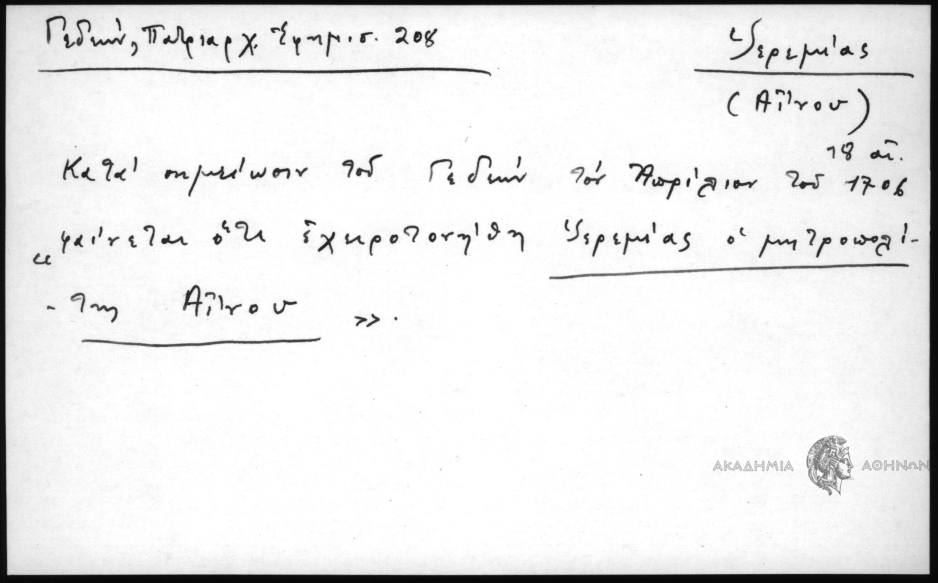 Γεδεών, Πατριαρχ. Ἐφημ. σ. 208
Ἱερεμίας
(Αἴνου)
18 αἰ.
Κατά σημείωσιν τοῦ Γεδεών τόν Ἀπρίλιον τοῦ 1706
"φαίνεται ὅτι ἐχειροτονήθη Ἱερεμίας ὁ μητροπολί-
-της Αἴνου».
ΑΚΑΔΗΜΙΑ ΑΘΗΝΩΝ